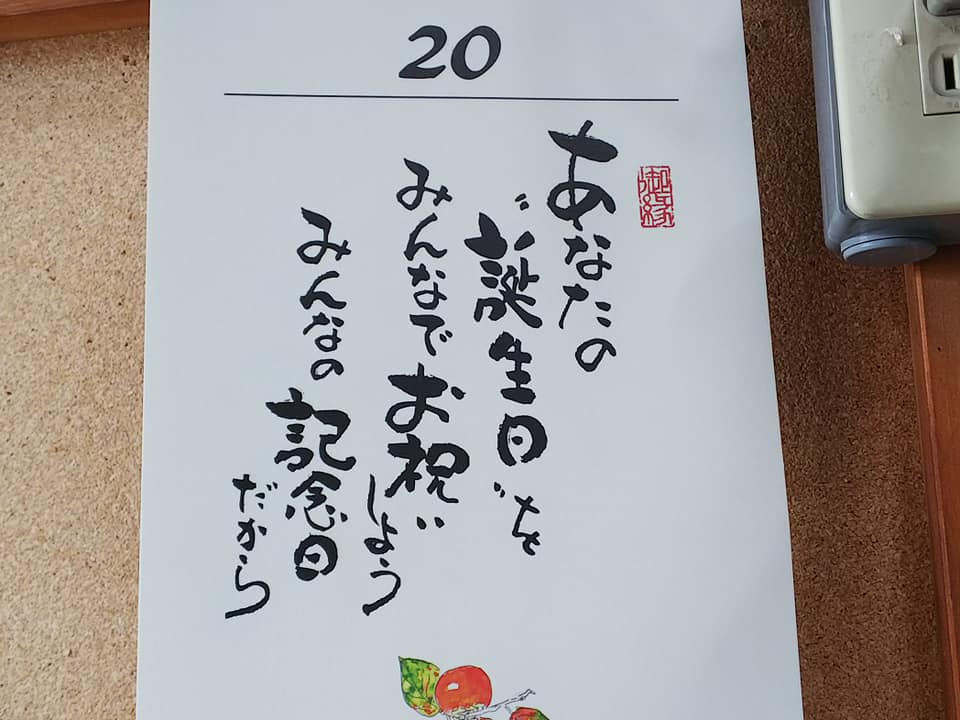 20
御縁
あなたの
〝誕生日〟を
みんなでお祝いしよう
みんなの記念日だから